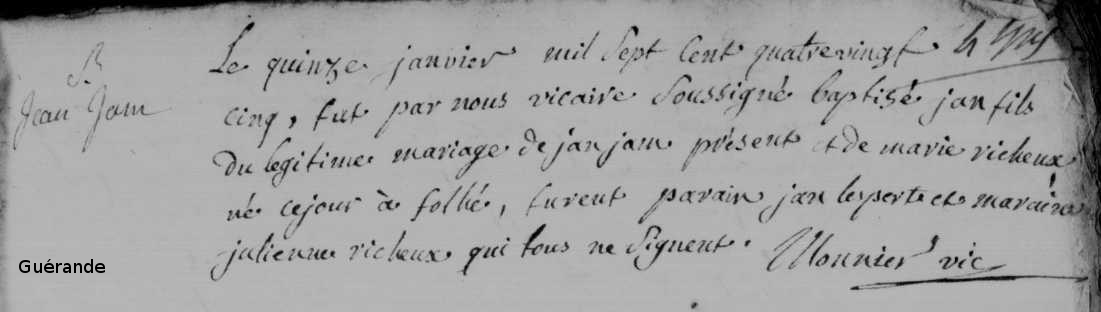 B
Jean Jam
Le quinze janvier mil sept cent quatrevingt
cinq, fut par nous vicaire soussigné baptisé jan fils
du legitime mariage de jan jam présent et de marie richeux
né cejour à folhé, furent parain jan lesperts et maraine
julienne richeux qui tous ne signent. Monnier vic
Guérande